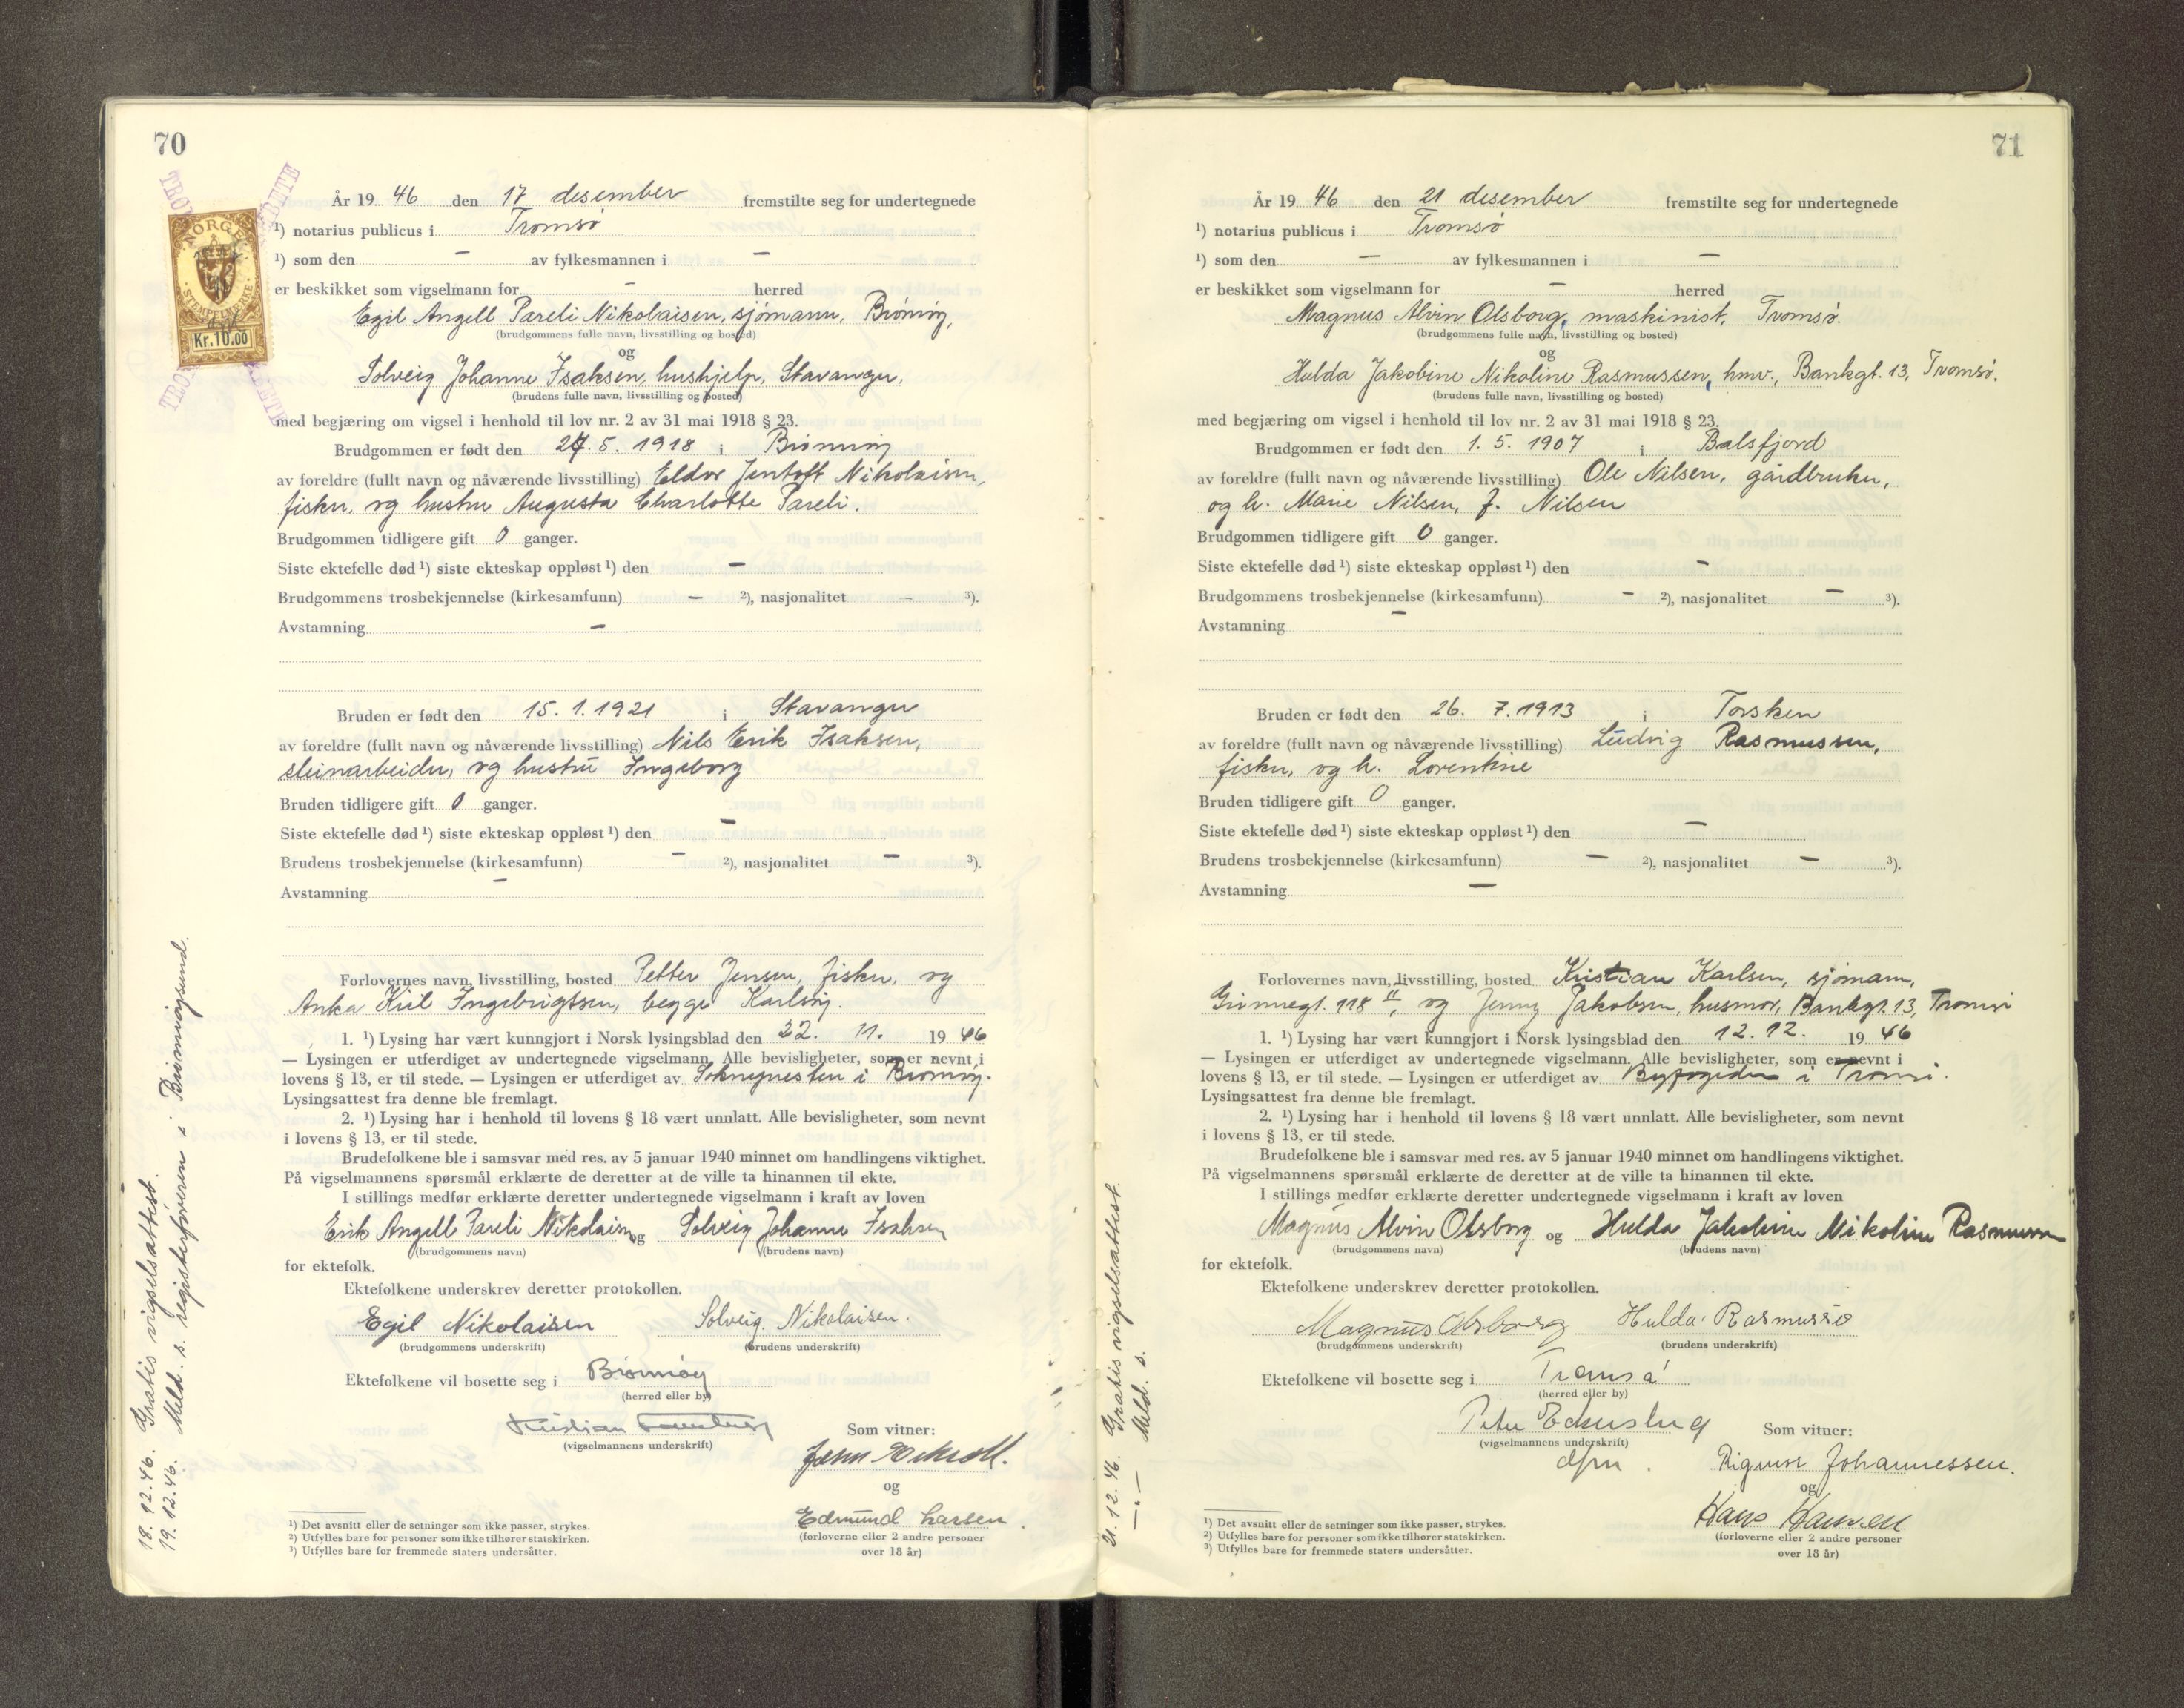 70
NORGE
STEMPELMERKE
Kr.10.00
År 19 46 den 17 desember fremstilte seg for undertegnede
¹) notarius publicus i Tromsø
¹) som den — av fylkesmannen i —
er beskikket som vigselmann for — herred
Egil Angell Pareli Nikolaisen, sjømann, Brønnøy,
(brudgommens fulle navn, livsstilling og bosted)
og
Solveig Johanne Isaksen, hushjelp, Stavanger,
(brudens fulle navn, livsstilling og bosted)
med begjæring om vigsel i henhold til lov nr. 2 av 31 mai 1918 § 23.
Brudgommen er født den 5. 1918 i Brønnøy
av foreldre (fullt navn og nåværende livsstilling) Eldor Jentoft Nikolaisen,
fisker, og hustru Augusta Charlotte Pareli.
Brudgommen tidligere gift 0 ganger.
Siste ektefelle død ¹) siste ekteskap oppløst ¹) den —
Brudgommens trosbekjennelse (kirkesamfunn) — ²), nasjonalitet — ³).
Avstamning —
Bruden er født den 15. 1. 1921 i Stavanger
av foreldre (fullt navn og nåværende livsstilling) Nils Erik Isaksen,
steinarbeider, og hustru Ingeborg
Bruden tidligere gift 0 ganger.
Siste ektefelle død ¹) siste ekteskap oppløst ¹) den —
Brudens trosbekjennelse (kirkesamfunn) — ²), nasjonalitet — ³).
Avstamning —
Forlovernes navn, livsstilling, bosted Petter Jensen, fisker, og
Anka Kiil Ingebrigtsen, begge Karlsøy.
1. ¹) Lysing har vært kunngjort i Norsk lysingsblad den 22. 11. 19 46
— Lysingen er utferdiget av undertegnede vigselmann. Alle bevisligheter, som er nevnt i
lovens § 13, er til stede. — Lysingen er utferdiget av Soknepresten i Brønnøy.
Lysingsattest fra denne ble fremlagt.
2. ¹) Lysing har i henhold til lovens § 18 vært unnlatt. Alle bevisligheter, som nevnt
i lovens § 13, er til stede.
Brudefolkene ble i samsvar med res. av 5 januar 1940 minnet om handlingens viktighet.
På vigselmannens spørsmål erklærte de deretter at de ville ta hinannen til ekte.
I stillings medfør erklærte deretter undertegnede vigselmann i kraft av loven
Erik Angell Pareli Nikolaisen og Solveig Johanne Isaksen
(brudgommens navn) (brudens navn)
for ektefolk.
Ektefolkene underskrev deretter protokollen.
Egil Nikolaisen Solveig Nikolaisen.
(brudgommens underskrift) (brudens underskrift)
Ektefolkene vil bosette seg i Brønnøy
(herred eller by)
Kristian
(vigselmannens underskrift)
Som vitner:
og
Edmund Larsen.
(forloverne eller 2 andre personer
over 18 år)
¹) Det avsnitt eller de setninger som ikke passer, strykes.
²) Utfylles bare for personer som ikke tilhører statskirken.
³) Utfylles bare for fremmede staters undersåtter.
18. 12. 46. Gratis vigselsattest.
19. 12. 46. Meld. s. registerføreren i Brønnøysund.
71
År 19 46 den 21 desember fremstilte seg for undertegnede
¹) notarius publicus i Tromsø
¹) som den — av fylkesmannen i —
er beskikket som vigselmann for — herred
Magnus Alvin Olsborg, maskinist, Tromsø.
(brudgommens fulle navn, livsstilling og bosted)
og
Hulda Jakobine Nikoline Rasmussen, hmv., Bankgt. 13, Tromsø.
(brudens fulle navn, livsstilling og bosted)
med begjæring om vigsel i henhold til lov nr. 2 av 31 mai 1918 § 23.
Brudgommen er født den 1. 5. 1907 i Balsfjord
av foreldre (fullt navn og nåværende livsstilling) Ole Nilsen, gårdbruker,
og h. Marie Nilsen, f. Nilsen
Brudgommen tidligere gift 0 ganger.
Siste ektefelle død ¹) siste ekteskap oppløst ¹) den —
Brudgommens trosbekjennelse (kirkesamfunn) — ²), nasjonalitet — ³).
Avstamning —
Bruden er født den 26. 7. 1913 i Torsken
av foreldre (fullt navn og nåværende livsstilling) Ludvig Rasmussen,
fisker, og h. Lorentine
Bruden tidligere gift 0 ganger.
Siste ektefelle død ¹) siste ekteskap oppløst ¹) den —
Brudens trosbekjennelse (kirkesamfunn) — ²), nasjonalitet — ³).
Avstamning —
Forlovernes navn, livsstilling, bosted Kristian Karlsen, sjømann,
118 II, og Jenny Jakobsen, husmor, Bankgt. 13, Tromsø
1. ¹) Lysing har vært kunngjort i Norsk lysingsblad den 12. 12. 19 46
— Lysingen er utferdiget av undertegnede vigselmann. Alle bevisligheter, som er nevnt i
lovens § 13, er til stede. — Lysingen er utferdiget av Byfogden i Tromsø.
Lysingsattest fra denne ble fremlagt.
2. ¹) Lysing har i henhold til lovens § 18 vært unnlatt. Alle bevisligheter, som nevnt
i lovens § 13, er til stede.
Brudefolkene ble i samsvar med res. av 5 januar 1940 minnet om handlingens viktighet.
På vigselmannens spørsmål erklærte de deretter at de ville ta hinannen til ekte.
I stillings medfør erklærte deretter undertegnede vigselmann i kraft av loven
Magnus Alvin Olsborg og Hulda Jakobine Nikoline Rasmussen
(brudgommens navn) (brudens navn)
for ektefolk.
Ektefolkene underskrev deretter protokollen.
Magnus Olsborg Hulda Rasmussen
(brudgommens underskrift) (brudens underskrift)
Ektefolkene vil bosette seg i Tromsø
(herred eller by)
(vigselmannens underskrift)
Som vitner:
Rigmor Johannessen.
og
Hans Hansen
(forloverne eller 2 andre personer
over 18 år)
¹) Det avsnitt eller de setninger som ikke passer, strykes.
²) Utfylles bare for personer som ikke tilhører statskirken.
³) Utfylles bare for fremmede staters undersåtter.
21. 12. 46. Gratis vigselsattest.
—"— Meld. s.